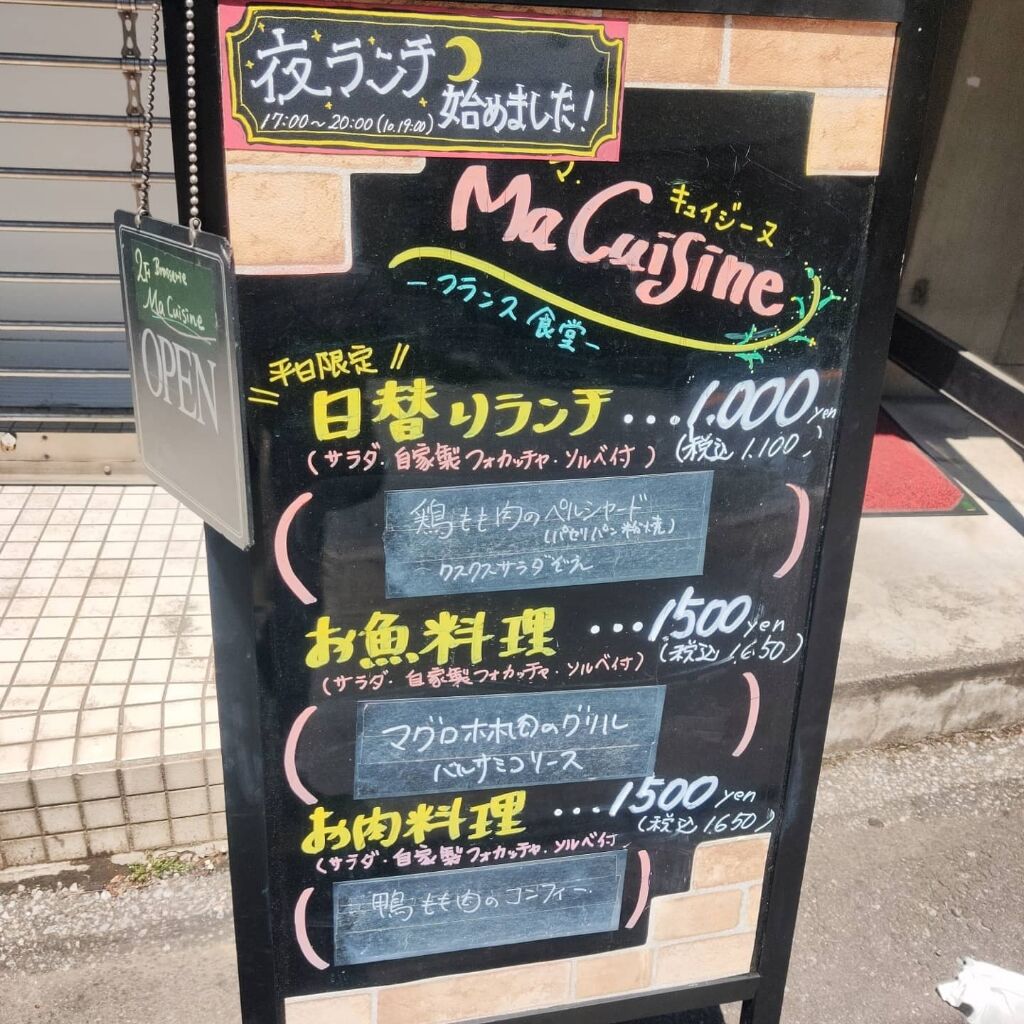 夜ランチ
始めました!
17:00～20:00 (Lo.19:00)
マ.
キュイジーヌ
Ma Cuisine
-フランス食堂-
2F Brasserie
Ma Cuisine
OPEN
平日限定
日替りランチ ... 1.000 yen
(サラダ・自家製フォカッチャ・ソルベ付) (税込 1.100)
鶏もも肉のペルシャード
(パセリパン粉焼)
クスクスサラダぞえ
お魚料理 ... 1500 yen
(税込 1.650)
(サラダ・自家製フォカッチャ・ソルベ付)
マグロホホ肉のグリル
バルサミコソース
お肉料理 ... 1500 yen
(税込 1.650)
(サラダ・自家製フォカッチャ・ソルベ付)
鴨もも肉のコンフィー